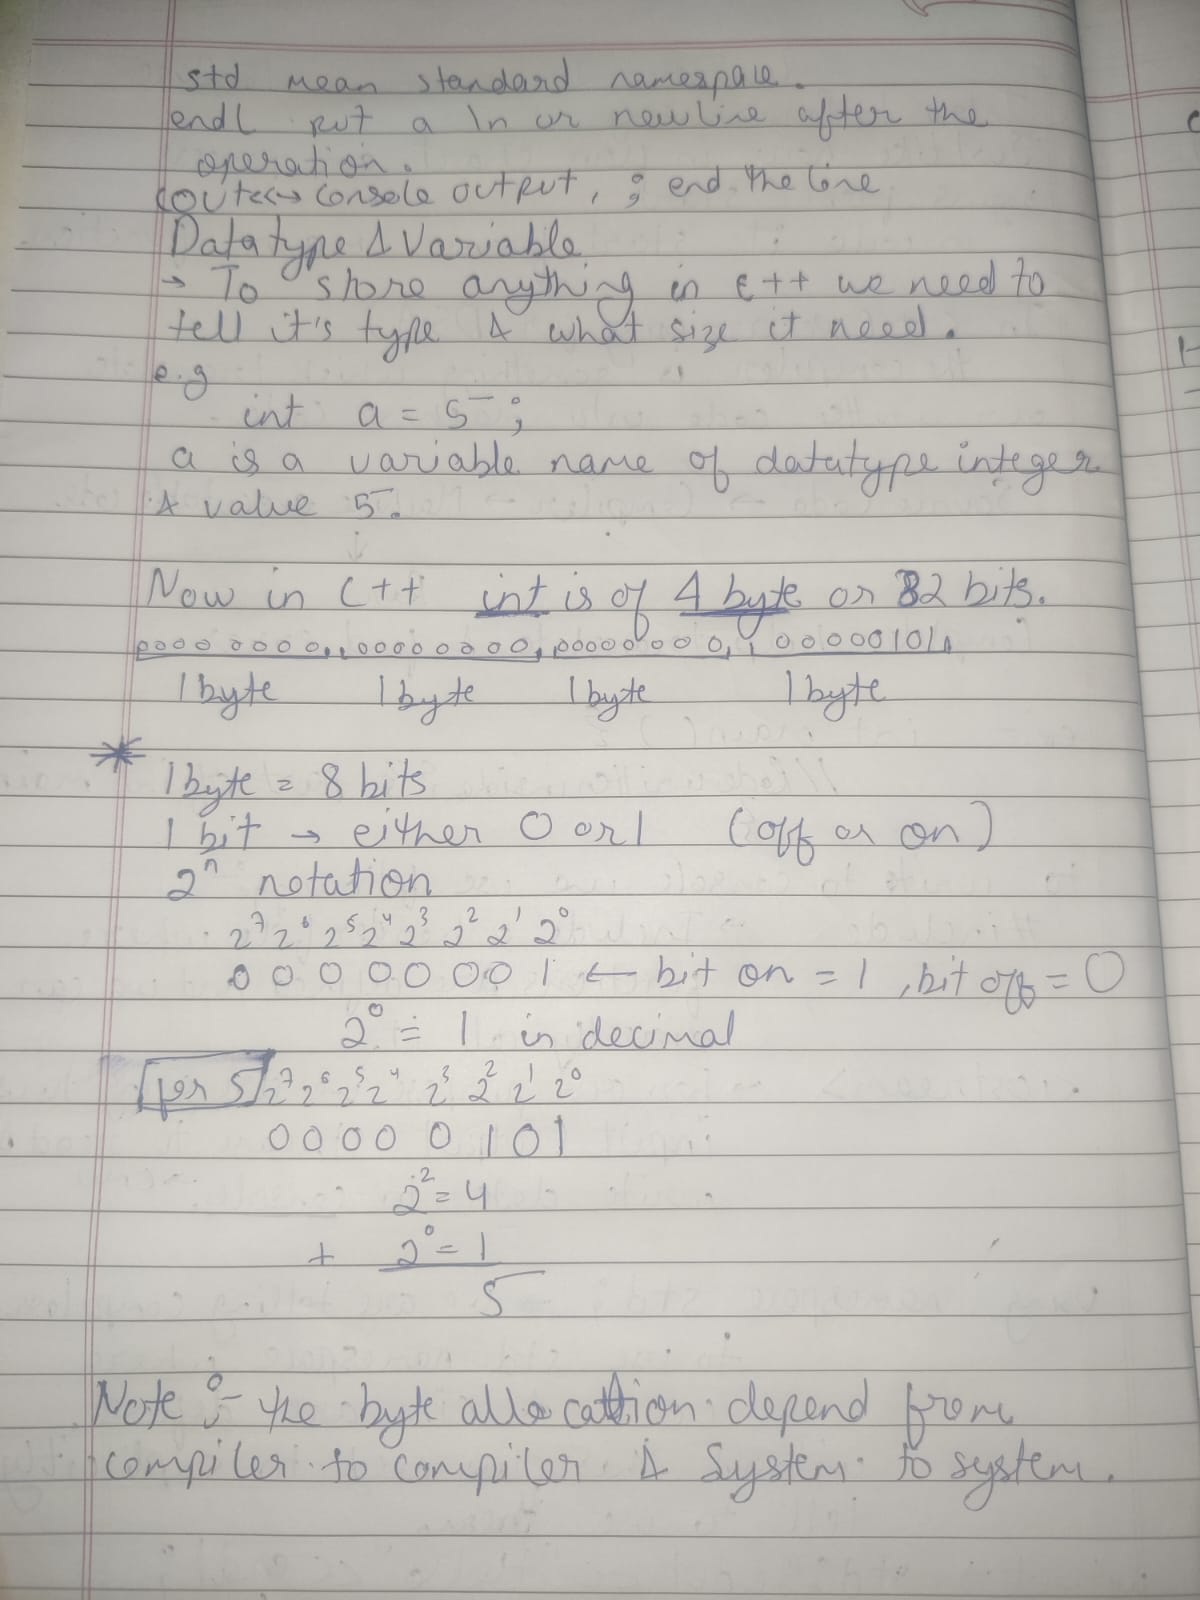 std mean standard namespace.
endl put a ln or newline after the
operation.
cout<<→ console output, ; end the line
Datatype & Variable
→ To store anything in c++ we need to
tell it's type & what size it need.
e.g
int a = 5;
a is a variable name of datatype integer
& value 5.
Now in C++ int is of 4 byte or 32 bits.
00000000, 00000000, 00000000, 00000101
1 byte 1 byte 1 byte 1 byte
* 1 byte = 8 bits
1 bit → either 0 or 1 (off or on)
2ⁿ notation
2⁷ 2⁶ 2⁵ 2⁴ 2³ 2² 2¹ 2⁰
0 0 0 0 0 0 0 1 ← bit on = 1, bit off = 0
2⁰ = 1 in decimal
for 5 2⁷ 2⁶ 2⁵ 2⁴ 2³ 2² 2¹ 2⁰
0 0 0 0 0 1 0 1
2² = 4
+ 2⁰ = 1
5
Note :- the byte allocation depend from
compiler to compiler & System to system.